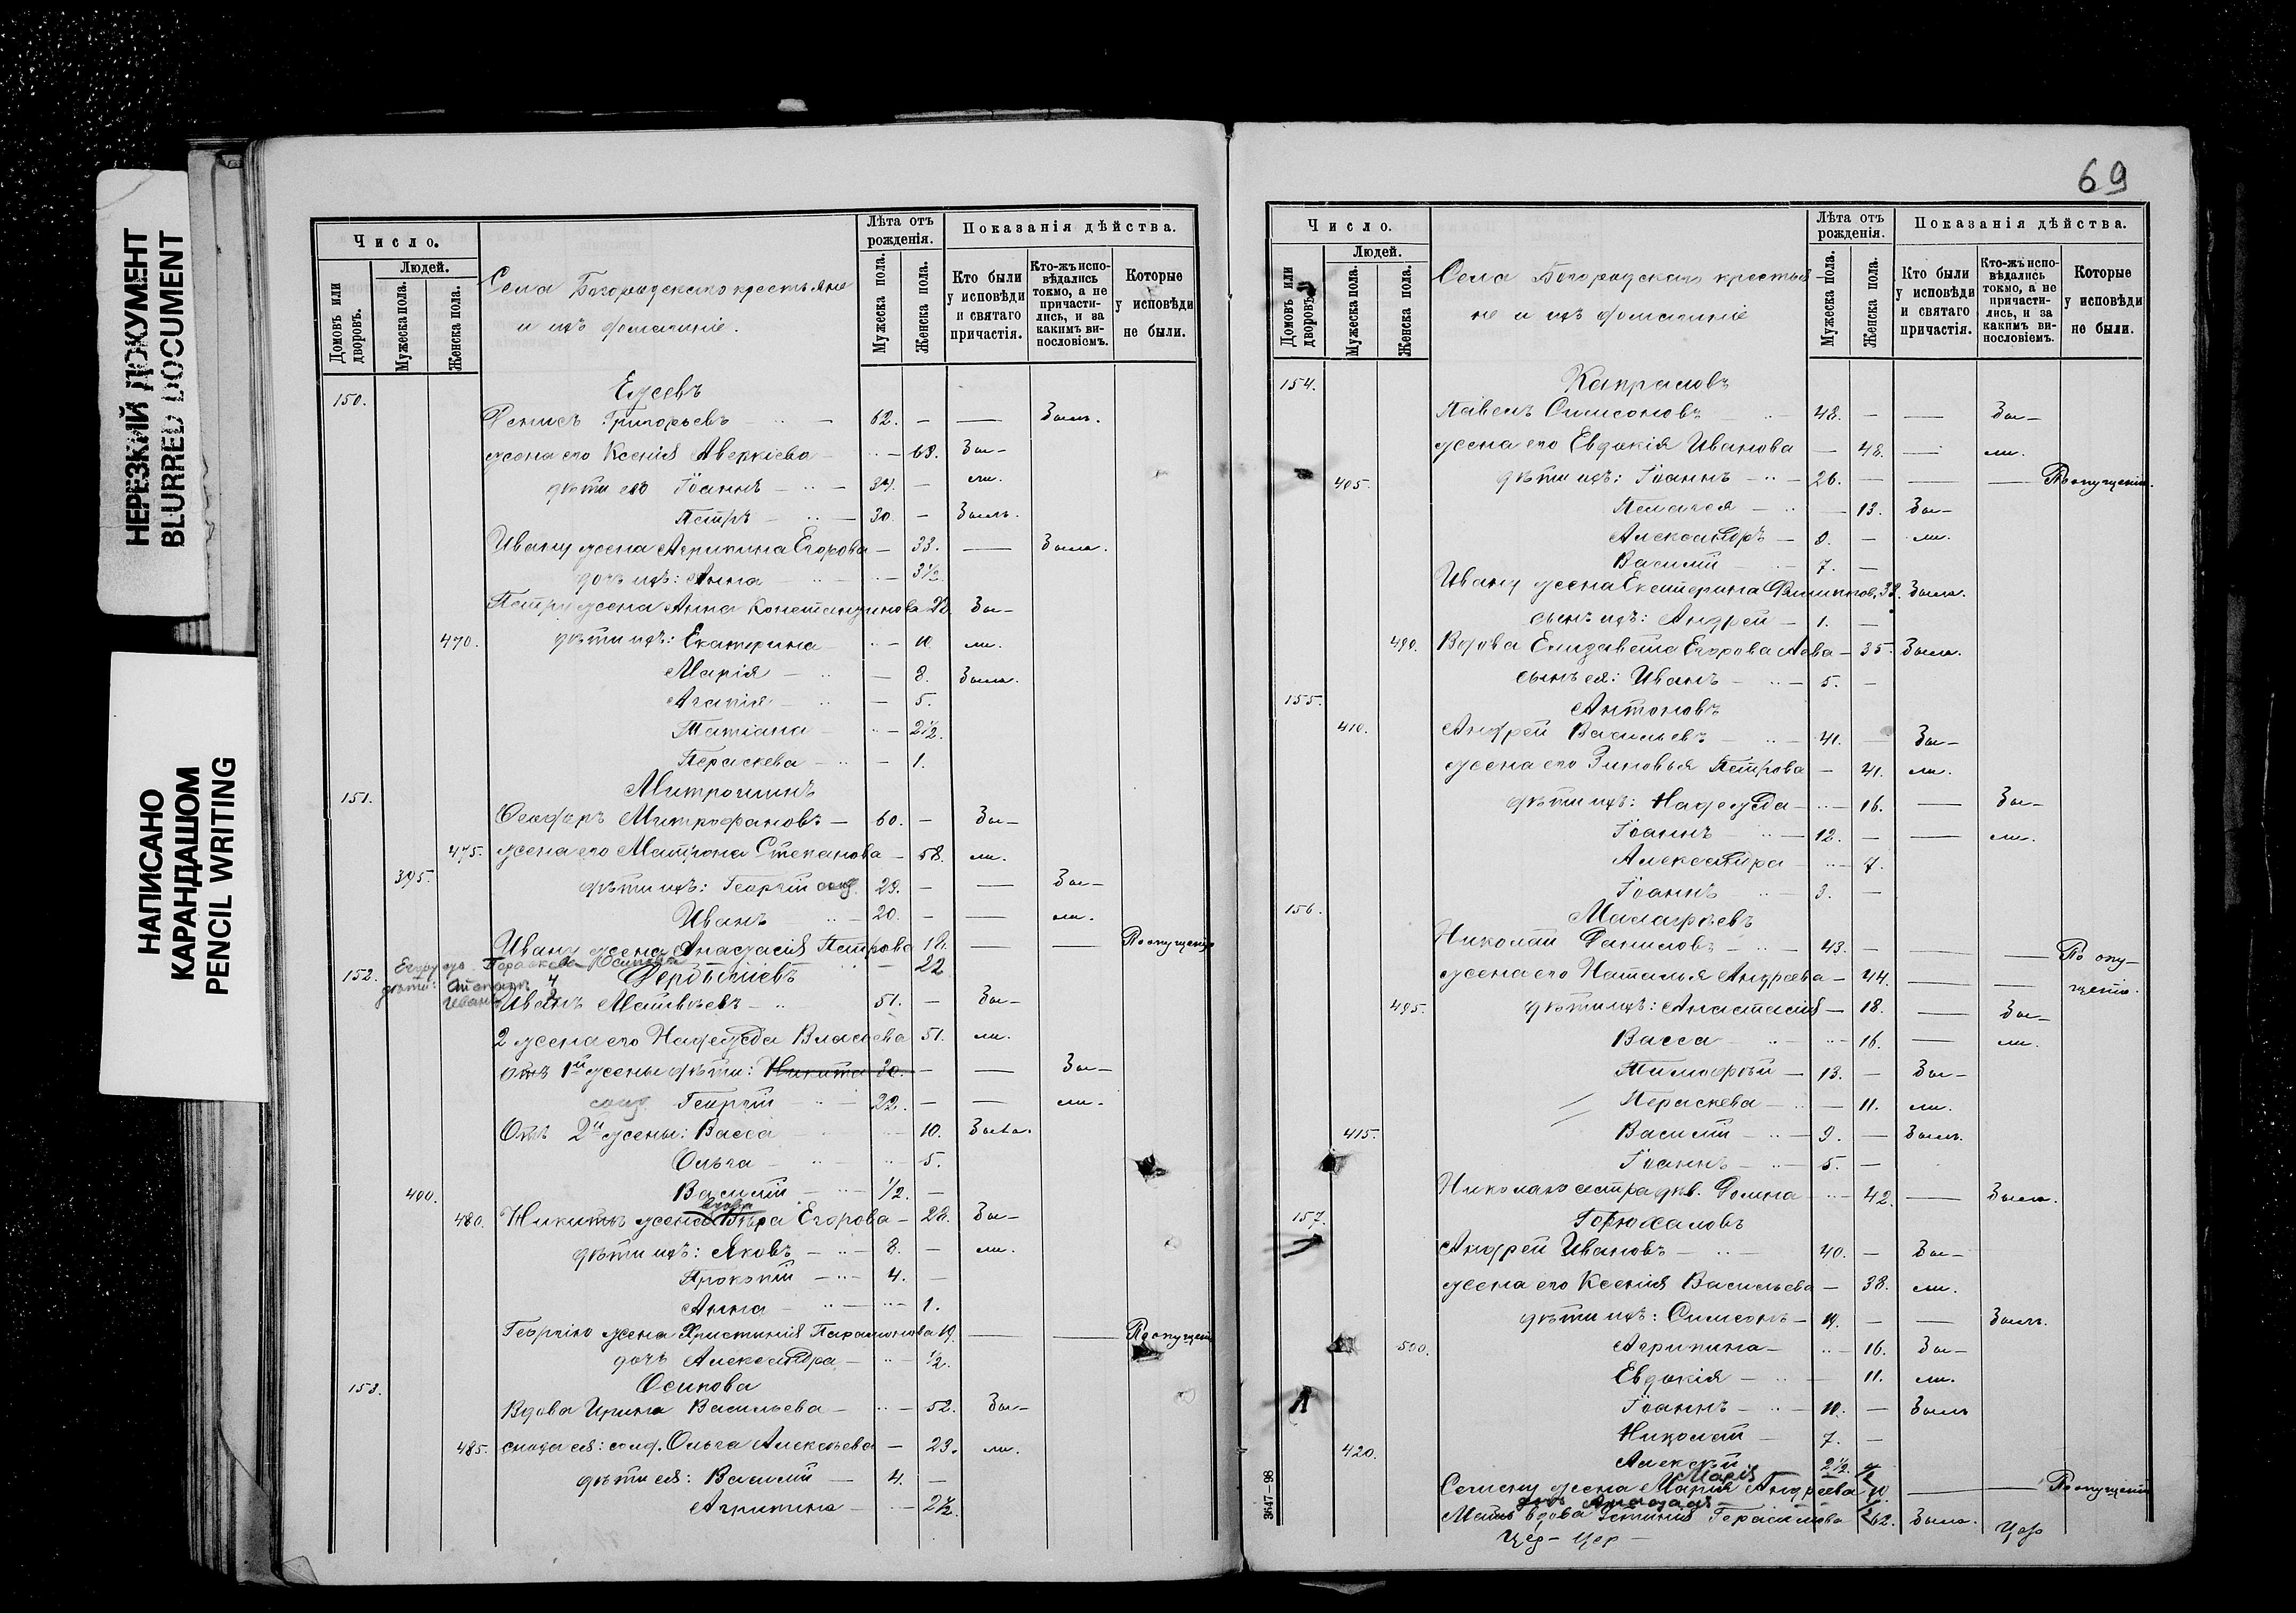 НЕРЕЗКИЙ ДОКУМЕНТ
BLURRED DOCUMENT
НАПИСАНО
КАРАНДАШОМ
PENCIL WRITING
Число.
Домовъ или дворовъ.
Людей.
Мужеска пола.
Женска пола.
Села Богородскаго крестьяне
и ихъ домашніе.
Лѣта отъ рожденія.
Мужеска пола.
Женска пола.
Показанія дѣйства.
Кто были у исповѣди и святаго причастія.
Кто-жъ исповѣдались токмо, а не причастились, и за какимъ винословіемъ.
Которые у исповѣди не были.
150. Елсевъ
Денисъ Григорьевъ — 62. — — Былъ.
жена его Ксенія Аверкіева — 63. Бы-
дѣти его Іоаннъ — 34. — ли.
Петръ — 30. — Былъ.
Ивану жена Агрипина Егорова — 33. — Была.
дочь ихъ: Анна — 3½
Петру жена Анна Константинова 32. Бы-
470. дѣти ихъ: Екатерина — 10. ли.
Марія — 8. Была.
Агапія — 5.
Татіана — 2½.
Параскева — 1.
151. Митрошинъ
Ѳеодоръ Митрофановъ — 60. — Бы-
475. жена его Матрона Степанова — 58. ли.
395. дѣти ихъ: Георгій солд. 23. — — Бы-
Иванъ — 20. — — ли.
Ивану жена Анастасія Петрова 18. — — По опущенію
Егору ж. Параскева Осипова — 22
дѣти: Степанъ 4
Иванъ
152. Дербышевъ
Иванъ Матвѣевъ — 51. — Бы-
2 жена его Надежда Власова 51. ли.
отъ 1й жены дѣти: Никита 30. — — Бы-
солд. Георгій — 22. — — ли.
Отъ 2й жены: Васса — 10. Была.
Ольга — 5.
400. Василій — ½. —
вдова
480. Никиты жена Вѣра Егорова — 28. Бы-
дѣти ихъ: Яковъ — 8. — ли.
Прокопій — 4. —
Анна — 1.
Георгію жена Христинія Парамонова 19. — — По опущенію
дочь Александра — ½.
153. Осипова
Вдова Ирина Васильева — 52. Бы-
485. сноха ея: солд. Ольга Алексѣева — 23. ли.
дѣти ея: Василій — 4. —
Агрипина — 2½.
69
Число.
Домовъ или дворовъ.
Людей.
Мужеска пола.
Женска пола.
Села Богородскаго крестья-
не и ихъ домашніе
Лѣта отъ рожденія.
Мужеска пола.
Женска пола.
Показанія дѣйства.
Кто были у исповѣди и святаго причастія.
Кто-жъ исповѣдались токмо, а не причастились, и за какимъ винословіемъ.
Которые у исповѣди не были.
154. Капраловъ
Павелъ Симеоновъ — 48. — — Бы-
жена его Евдокія Иванова — 48. — ли.
405. дѣти ихъ: Іоаннъ — 26. — — — По опущенію.
Пелагея — 13. Бы-
Александръ — 9. — ли.
Василій — 7. —
Ивану жена Екатерина Филиппов. 32. Была.
сынъ ихъ: Андрей — 1. —
490. Вдова Елизавета Егорова — 35. Была.
сынъ ея: Иванъ — 5. —
155. Антоновъ
410. Андрей Васильевъ — 41. — Бы-
жена его Зиновья Петрова — 41. ли.
дѣти ихъ: Надежда — 16. — Бы-
Іоаннъ — 12. — — ли.
Александра — 7.
Іоаннъ — 3. —
156. Малафѣевъ
Николай Даниловъ — 43. — — — По опу-
жена его Наталья Андреева — 44. — — щенію.
495. дѣти ихъ: Анастасія — 18. — Бы-
Васса — 16. — ли.
Тимофѣй — 13. — Бы-
Параскева — 11. ли.
415. Василій — 9. — Былъ.
Іоаннъ — 5. —
Николаю сестра дѣв. Домна — 42. — Была.
157. Горюхаловъ
Андрей Ивановъ — 40. — Бы-
жена его Ксенія Васильева — 38. ли.
дѣти ихъ: Симеонъ — 19. — — Былъ.
500. Агрипина — 16. Бы-
Евдокія — 11. ли.
Іоаннъ — 10. — Былъ
Николай — 7. —
420. Алексѣй — 2½.
Марія
Семену жена Марія Андреева — — По опущенію
Мать вдова Устинія Герасимова 62. Была.
3647—98